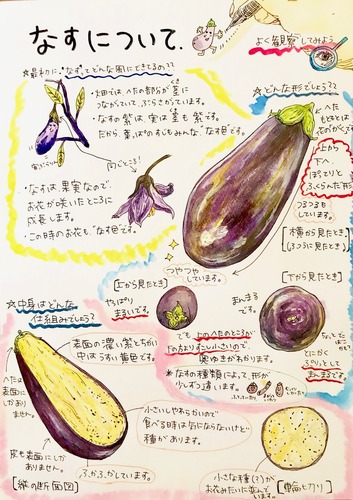 なすについて.
よく観察してみよう
☆最初に、"なす"ってどんな風にできてるの??
・畑では へたの部分が茎に
つながっていて、ぶらさがっています。
・なすの紫は 実は茎も紫です。
だから、葉っぱのすじもみんな"なす"色です。
同じところ!
・なすは、果実なので、
お花が咲いたところに
成長します。
・この時のお花も"なす色"です。
☆どんな形でしょう??
へた
もともとは
上から
下へ
ぽってりと
ふくらんだ形
つるつる
しています。
横から見たとき
つやつや
しています。
上から見たとき
やっぱり
まるいです。
下から見たとき
まんまる
です。
とにかく
ぷりっとして
まんまるです。
でも、上のへたのところが
下の方よりすこし小さいので、
奥ゆきがあります。
*なすの種類によって、形が
少しずつ違います。
☆中身はどんな
仕組みでしょう?
表面の濃い紫とちがい
中はうすい黄色です。
へたは
表面に
しか
ありません。
小さいしやわらかいので
食べる時は気にならないけれど
種があります。
皮も表面にしか
ありません。
ふかふかしています。
[縦の断面図]
小さな種(?)が
お花みたいに並んで
ます。
[輪切り]